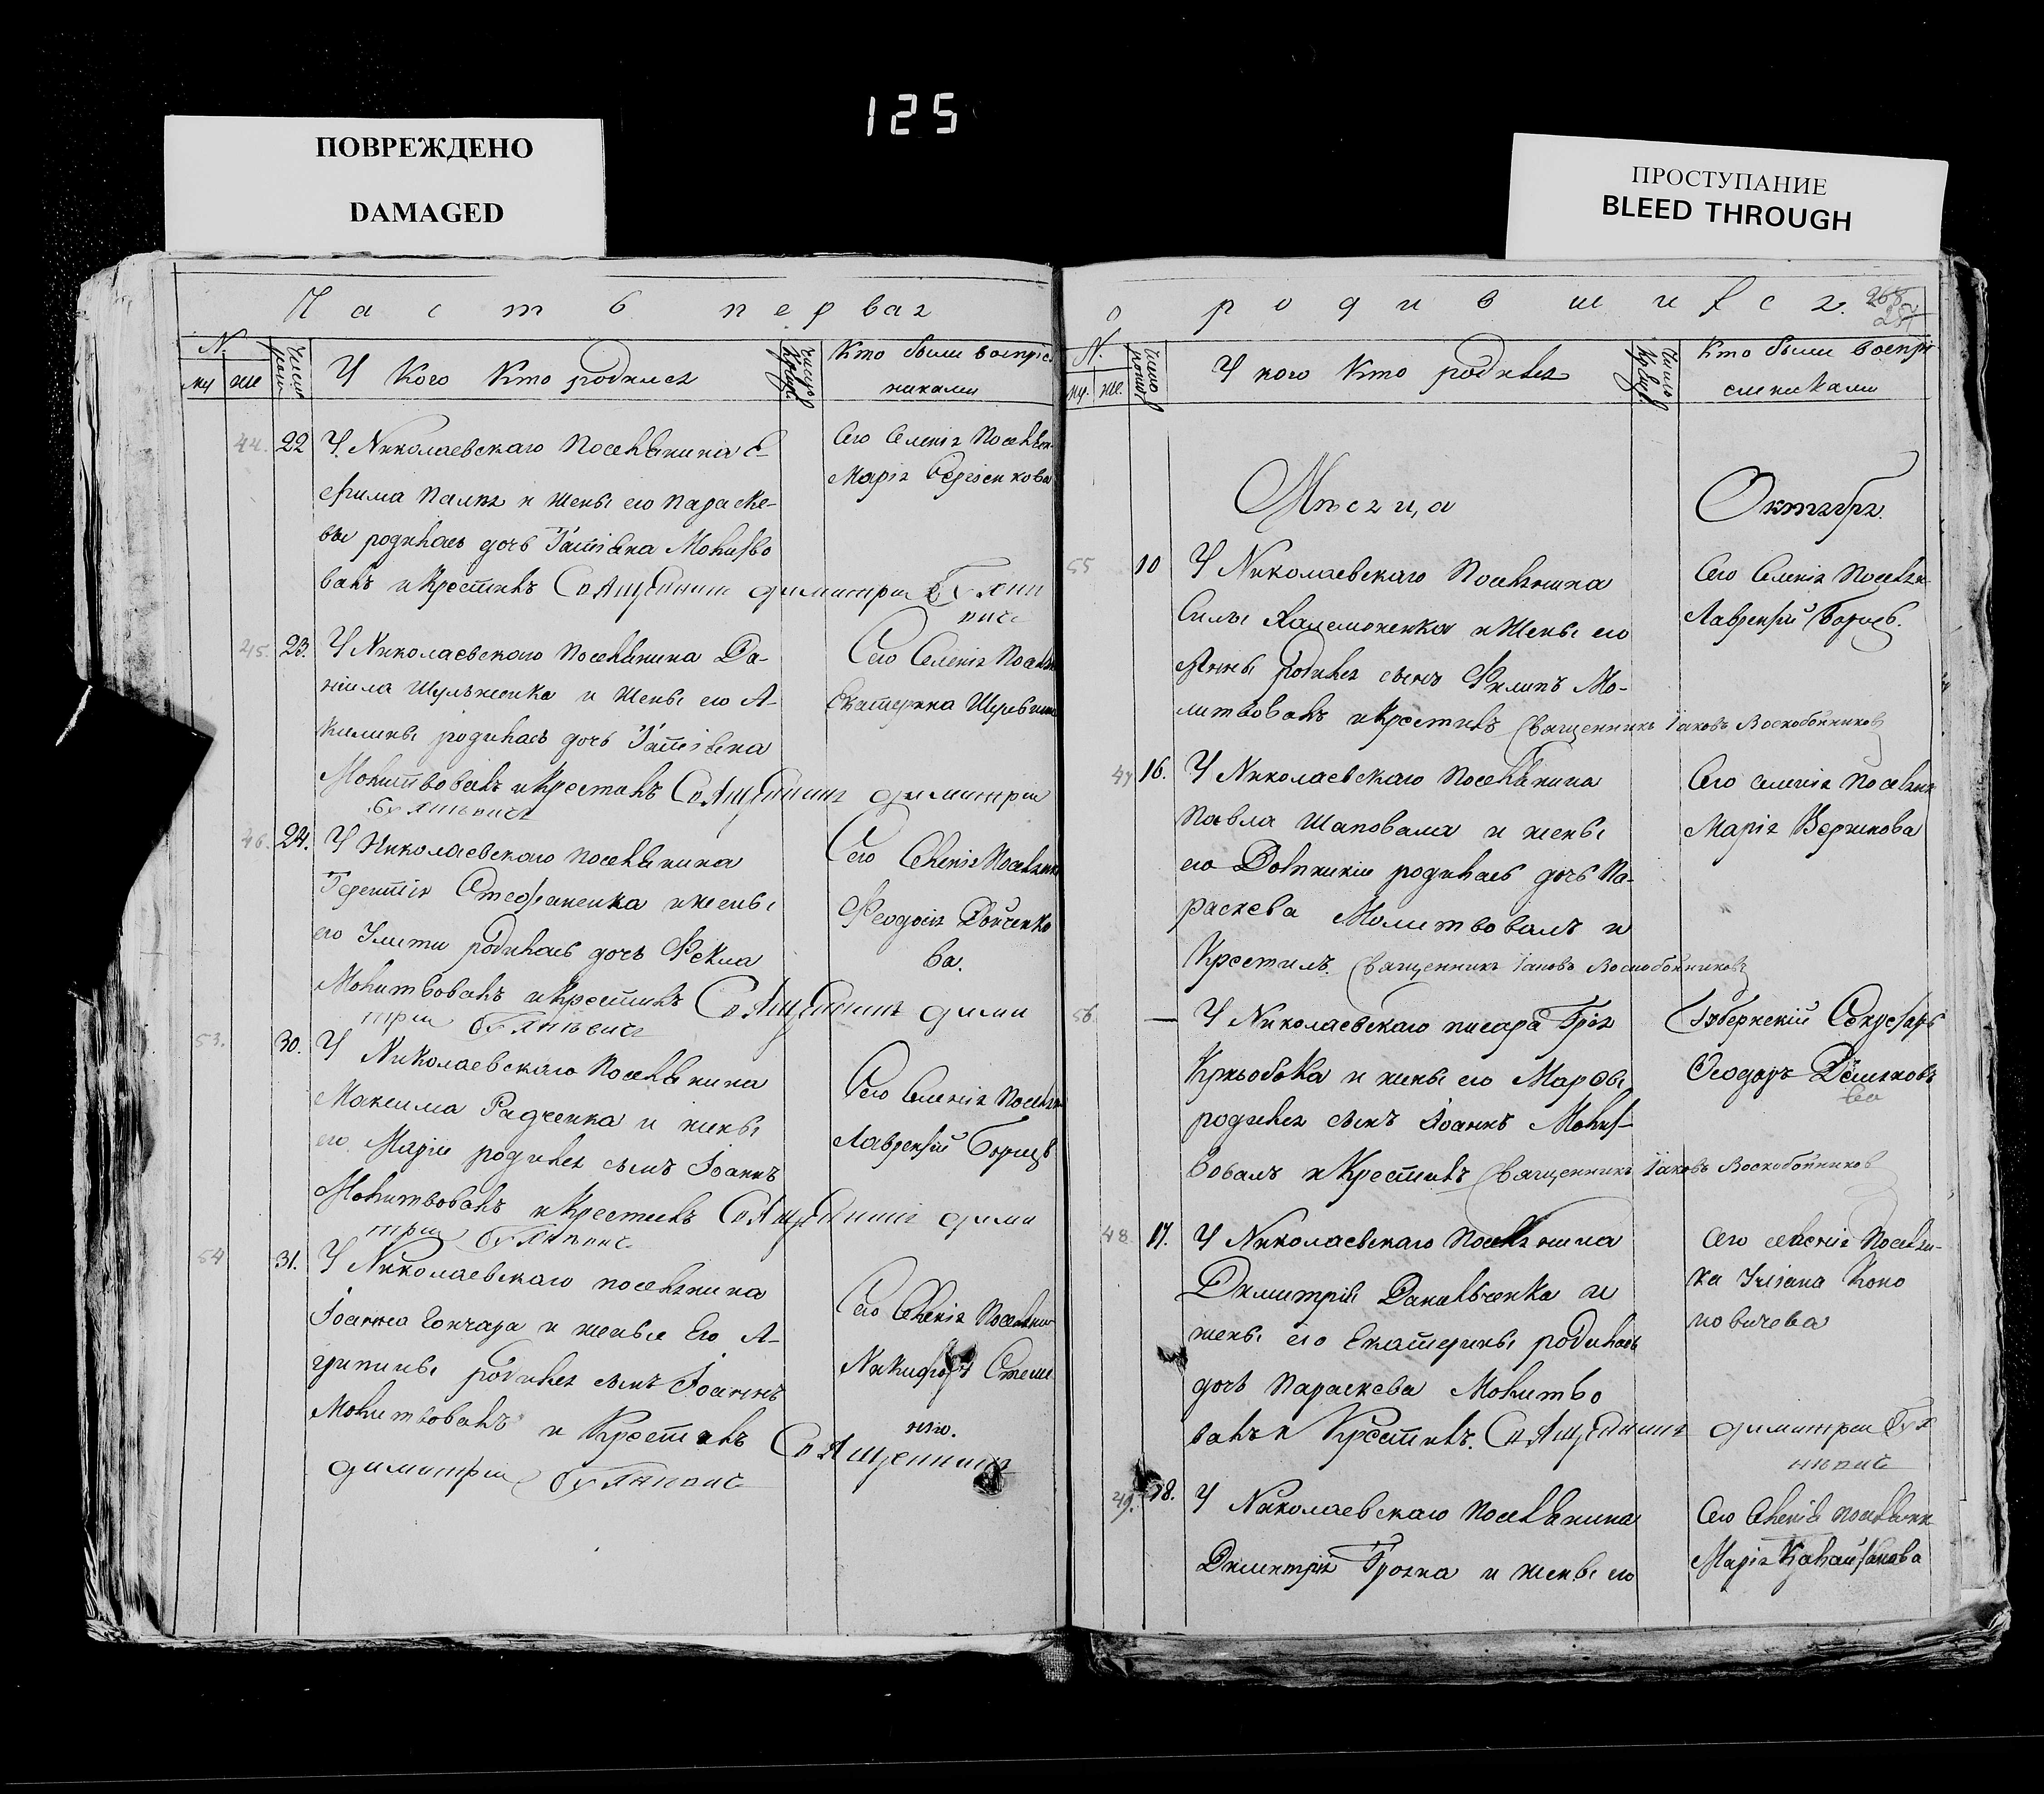 125
ПОВРЕЖДЕНО
DAMAGED
ПРОСТУПАНИЕ
BLEED THROUGH
Часть первая
N.
му же
Число рожд.
У Кого Кто родился
Число крещ.
Кто были воспріе
никами
44. 22 У Николаевскаго Поселянина Е-
фима Палия и жены его Параске-
вы родилась дочь Татіана Молитво
валъ и Крестилъ Священникъ Димитрій
Сего Селенія Поселян
Марія Сергіенкова
45. 23. У Николаевскаго Поселянина Да-
ніила Шульженка и Жены его А-
килины родилась дочь Татіана
Молитвовалъ и Крестилъ Священникъ Димитрій
Сего Селенія Поселян
Екатерина
46. 24. У Николаевскаго поселянина
Терентія Стефаненка и жены
его Улиты родилась дочь Фекла
Молитвовалъ и Крестилъ Священникъ Дими
трій
Сего Селенія Поселян
Феодосія Дойченко
ва.
53. 30. У Николаевскаго Поселянина
Максима Радченка и жены
его Маріи родился сынъ Іоаннъ
Молитвовалъ и Крестилъ Священникъ Дими
трій
Сего Селенія Поселян
Лаврентій Борищъ
54 31. У Николаевскаго поселянина
Іоанна Гончара и жены Его А-
грипины родился сынъ Іоаннъ
Молитвовалъ и Крестилъ Священникъ
Димитрій
Сего Селенія Поселян
Никифоръ
о родившихся.
268
N.
му. же.
Число рожд.
У кого Кто родился
Число крещ.
Кто были воспрі
емниками
Мѣсяца Октября.
55 10 У Николаевскаго Поселянина
Силы и Жены его
Анны родился сынъ Филипъ Мо-
литвовалъ и Крестилъ Священникъ Іаковъ Воскобойниковъ
Сего Селенія Поселян
Лаврентій Борищъ.
47 16. У Николаевскаго Поселянина
Павла Шаповала и жены
его Домникіи родилась дочь Па-
раскева Молитвовалъ и
Крестилъ. Священникъ Іаковъ Воскобойниковъ
Сего селенія Поселян
Марія
56. — У Николаевскаго писаря
и жены его Марфы
родился сынъ Іоаннъ Молит-
вовалъ и Крестилъ Священникъ Іаковъ Воскобойниковъ
Губернскій Секретарь
Феодоръ
48 17. У Николаевскаго Поселянина
Димитрія Данильченка и
жены его Екатерины родилась
дочь Параскева Молитво
валъ и Крестилъ. Священникъ Димитрій
Сего селенія Поселян-
ка Уліана Коно
новичева
49. 18. У Николаевскаго Поселянина
Димитрія и жены его
Сего Селенія Поселянк
Марія